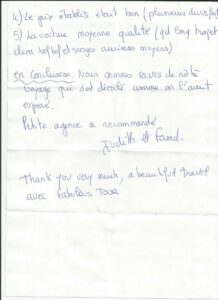 4) Le prix établis était bon (plusieurs devis fait
5) La voiture moyenne qualité (qd long trajet
dim et sièges arrières moyens)
en conclusion: Nous sommes ravis de notre
voyage qui s'est déroulé comme on l'avait
espéré.
Petite agence a recommandé
Judith et Fared.
Thank you very much, a beautiful travel
avec fabulous Tour